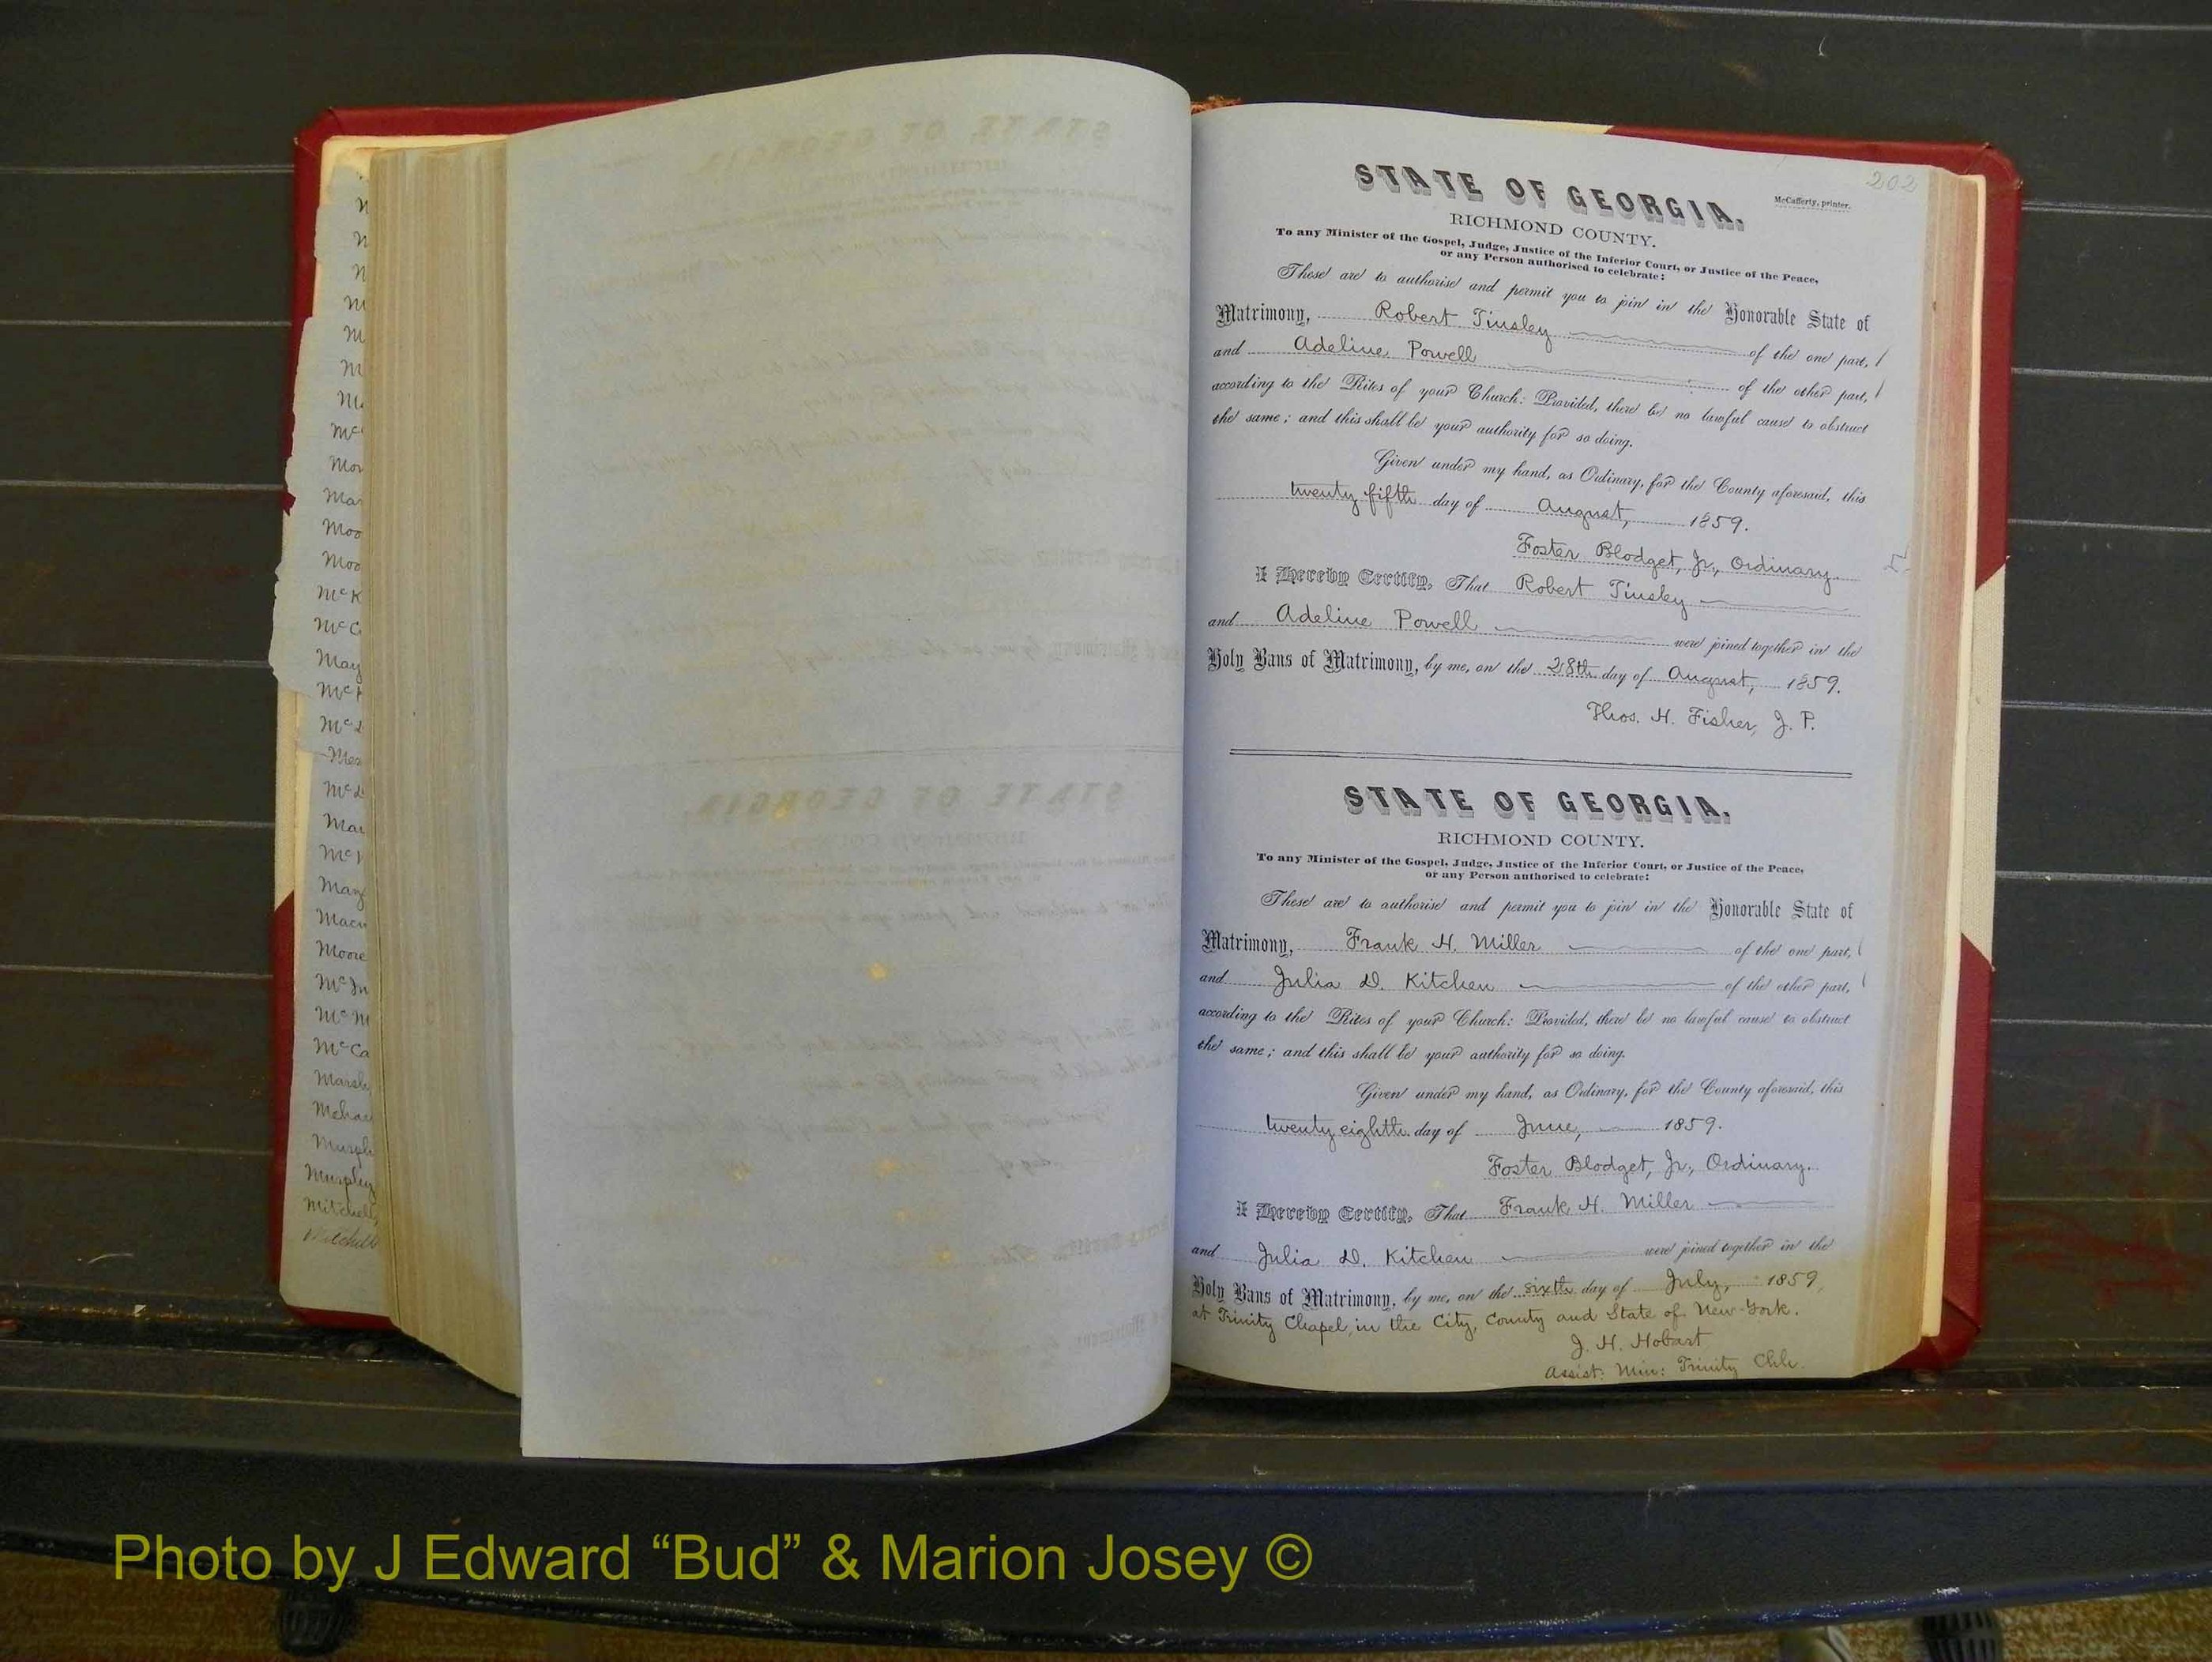 Mc
Mor
Mar
Moo
Moo
McK
McC
May
Mc
Mc
McD
Mar
Mc
Macn
Moore
McIn
McM
McCa
Marsh
Murph
Murphy
Mitchell
Mitchell
202
STATE OF GEORGIA.
McCafferty, printer.
RICHMOND COUNTY.
To any Minister of the Gospel, Judge, Justice of the Inferior Court, or Justice of the Peace,
or any Person authorised to celebrate:
These are to authorise and permit you to join in the Honorable State of
Matrimony, Robert Tinsley of the one part,
and Adeline Powell of the other part,
according to the Rites of your Church: Provided, there be no lawful cause to obstruct
the same; and this shall be your authority for so doing.
Given under my hand, as Ordinary, for the County aforesaid, this
twenty fifth day of August, 1859.
Foster Blodget, Jr., Ordinary.
I Hereby Certify, That Robert Tinsley
and Adeline Powell were joined together in the
Holy Bans of Matrimony, by me, on the 28th day of August, 1859.
Thos. H. Fisher, J. P.
STATE OF GEORGIA.
RICHMOND COUNTY.
To any Minister of the Gospel, Judge, Justice of the Inferior Court, or Justice of the Peace,
or any Person authorised to celebrate:
These are to authorise and permit you to join in the Honorable State of
Matrimony, Frank H. Miller of the one part,
and Julia D. Kitchen of the other part,
according to the Rites of your Church: Provided, there be no lawful cause to obstruct
the same; and this shall be your authority for so doing.
Given under my hand, as Ordinary, for the County aforesaid, this
twenty eighth day of June, 1859.
Foster Blodget, Jr., Ordinary.
I Hereby Certify, That Frank H. Miller
and Julia D. Kitchen were joined together in the
Holy Bans of Matrimony, by me, on the sixth day of July, 1859,
at Trinity Chapel, in the City, County and State of New-York.
J. H. Hobart
Assist: Min: Trinity Chh.
Photo by J Edward “Bud” & Marion Josey ©